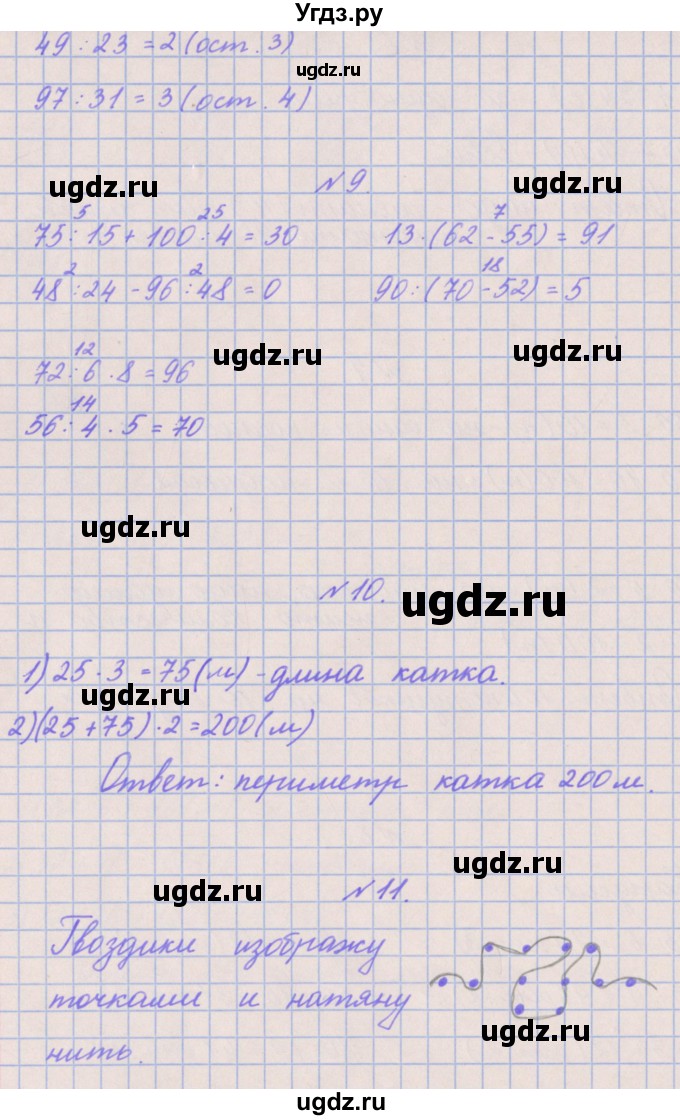 Угдз.ру
49 : 23 = 2 (ост. 3)
ugdz.ru
97 : 31 = 3 (ост. 4)
ugdz.ru
№ 9.
ugdz.ru
5 25 7
75 : 15 + 100 : 4 = 30 13 · (62 - 55) = 91
2 2 18
48 : 24 - 96 : 48 = 0 90 : (70 - 52) = 5
ugdz.ru
ugdz.ru
12
72 : 6 · 8 = 96
14
56 : 4 · 5 = 70
ugdz.ru
№ 10.
ugdz.ru
1) 25 · 3 = 75 (м) - длина катка.
ugdz.ru
2) (25 + 75) · 2 = 200 (м)
Ответ: периметр катка 200 м.
ugdz.ru
ugdz.ru
№ 11.
Гвоздики изображу
точками и натяну
ugdz.ru
нить.
ugdz.ru